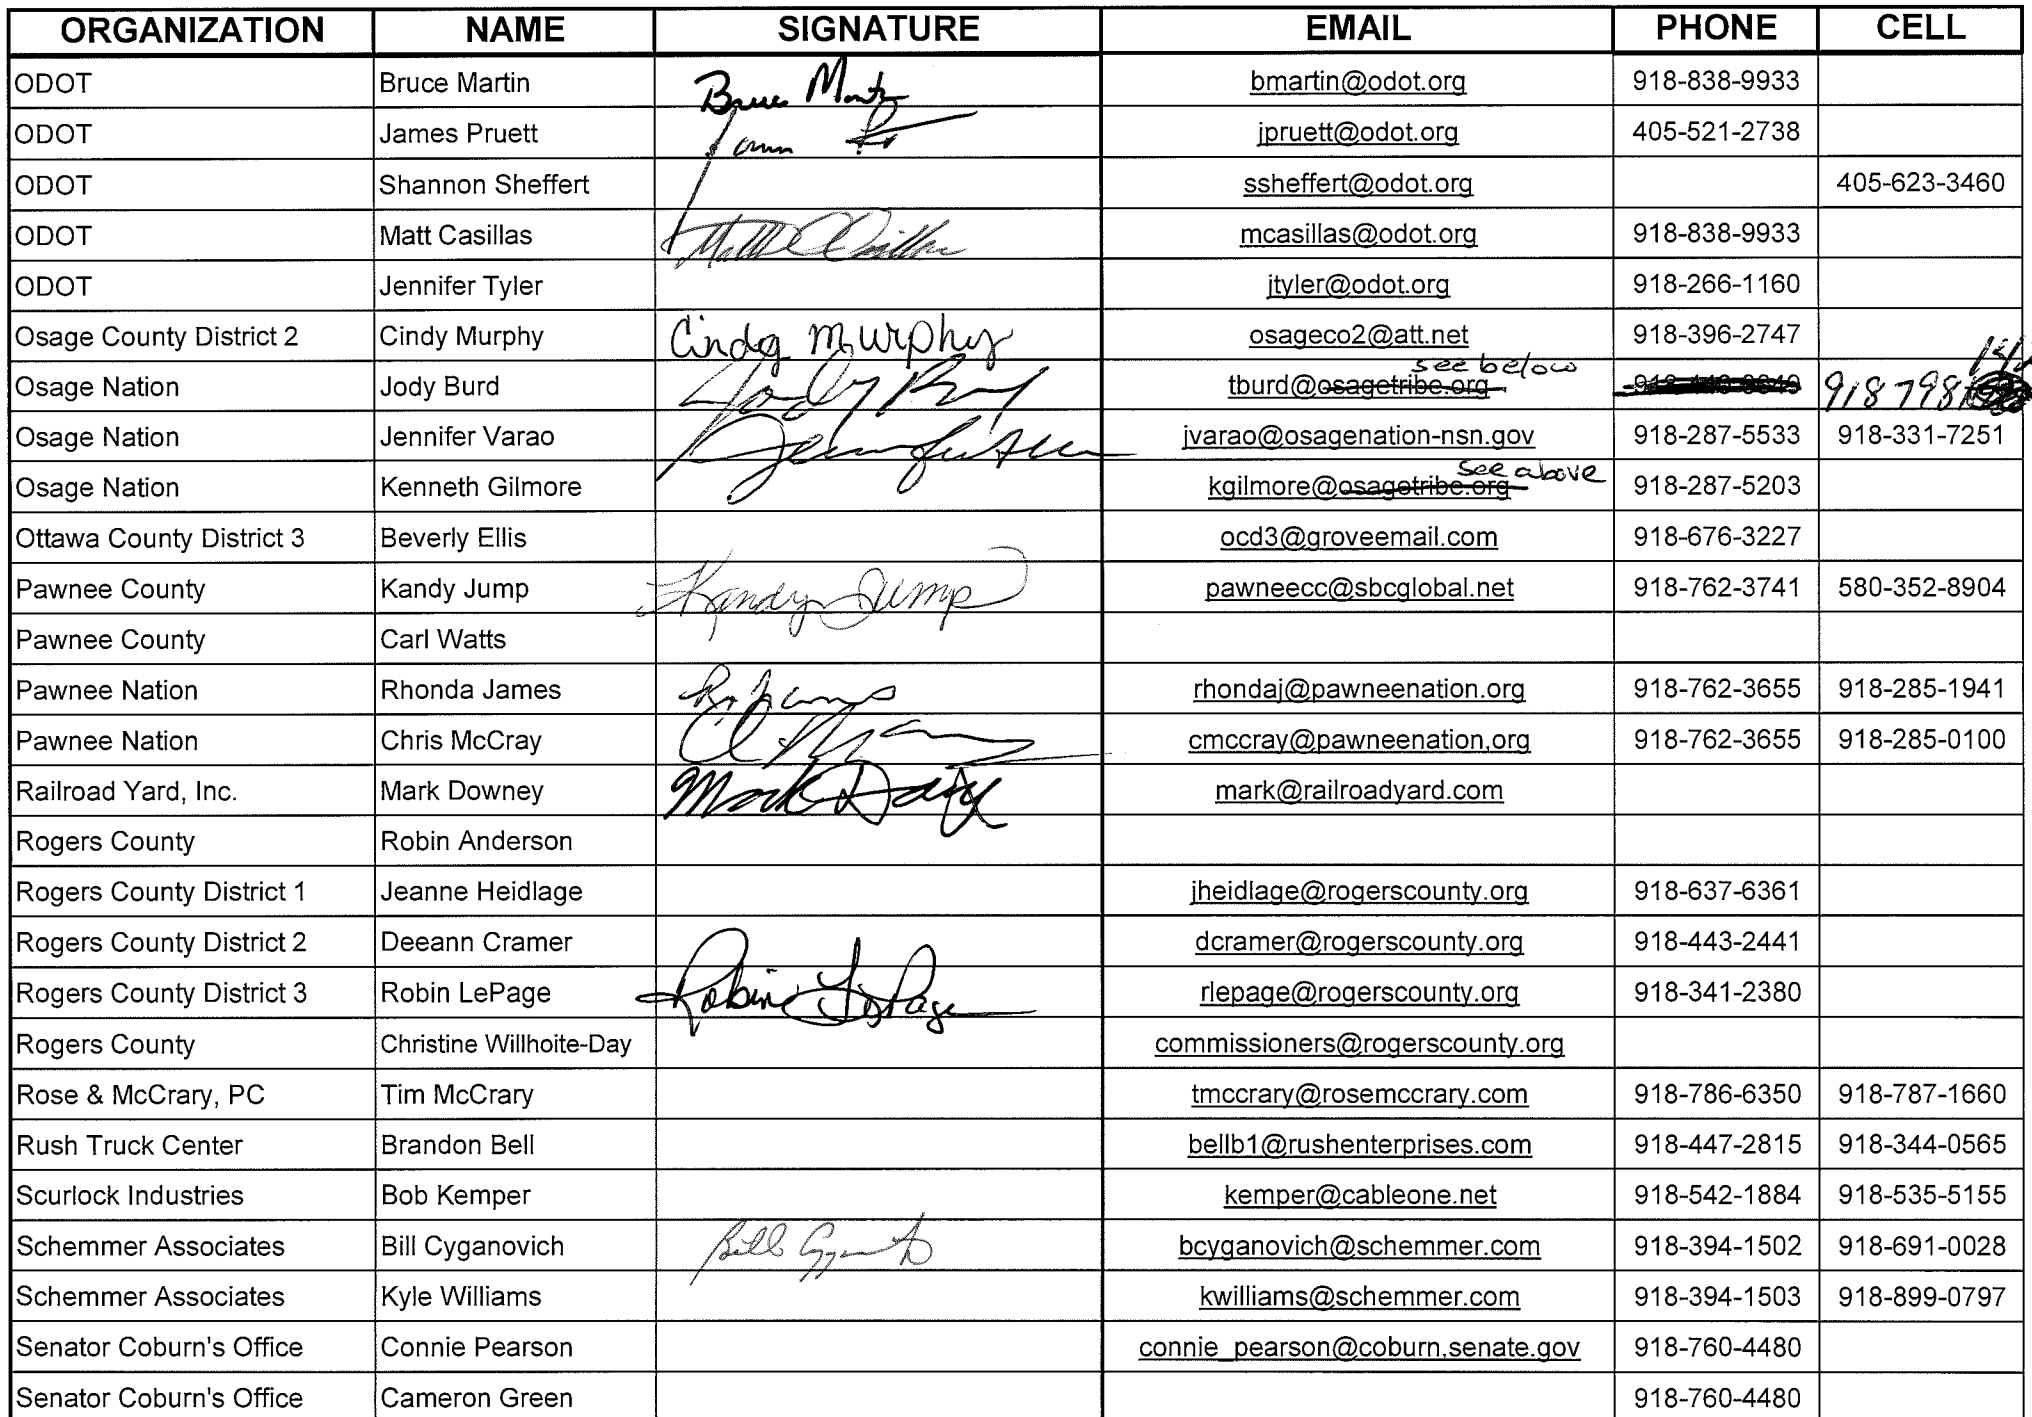 ORGANIZATION NAME SIGNATURE EMAIL PHONE CELL
ODOT Bruce Martin Bruce Martin bmartin@odot.org 918-838-9933
ODOT James Pruett jpruett@odot.org 405-521-2738
ODOT Shannon Sheffert ssheffert@odot.org 405-623-3460
ODOT Matt Casillas Matt Casillas mcasillas@odot.org 918-838-9933
ODOT Jennifer Tyler jtyler@odot.org 918-266-1160
Osage County District 2 Cindy Murphy Cindy Murphy osageco2@att.net 918-396-2747
see below
Osage Nation Jody Burd Jody Burd tburd@osagetribe.org 918 798
Osage Nation Jennifer Varao jvarao@osagenation-nsn.gov 918-287-5533 918-331-7251
see above
Osage Nation Kenneth Gilmore kgilmore@osagetribe.org 918-287-5203
Ottawa County District 3 Beverly Ellis ocd3@groveemail.com 918-676-3227
Pawnee County Kandy Jump Kandy Jump pawneecc@sbcglobal.net 918-762-3741 580-352-8904
Pawnee County Carl Watts
Pawnee Nation Rhonda James rhondaj@pawneenation.org 918-762-3655 918-285-1941
Pawnee Nation Chris McCray cmccray@pawneenation,org 918-762-3655 918-285-0100
Railroad Yard, Inc. Mark Downey Mark mark@railroadyard.com
Rogers County Robin Anderson
Rogers County District 1 Jeanne Heidlage jheidlage@rogerscounty.org 918-637-6361
Rogers County District 2 Deeann Cramer dcramer@rogerscounty.org 918-443-2441
Rogers County District 3 Robin LePage Robin LePage rlepage@rogerscounty.org 918-341-2380
Rogers County Christine Willhoite-Day commissioners@rogerscounty.org
Rose & McCrary, PC Tim McCrary tmccrary@rosemccrary.com 918-786-6350 918-787-1660
Rush Truck Center Brandon Bell bellb1@rushenterprises.com 918-447-2815 918-344-0565
Scurlock Industries Bob Kemper kemper@cableone.net 918-542-1884 918-535-5155
Schemmer Associates Bill Cyganovich Bill bcyganovich@schemmer.com 918-394-1502 918-691-0028
Schemmer Associates Kyle Williams kwilliams@schemmer.com 918-394-1503 918-899-0797
Senator Coburn's Office Connie Pearson connie_pearson@coburn.senate.gov 918-760-4480
Senator Coburn's Office Cameron Green 918-760-4480